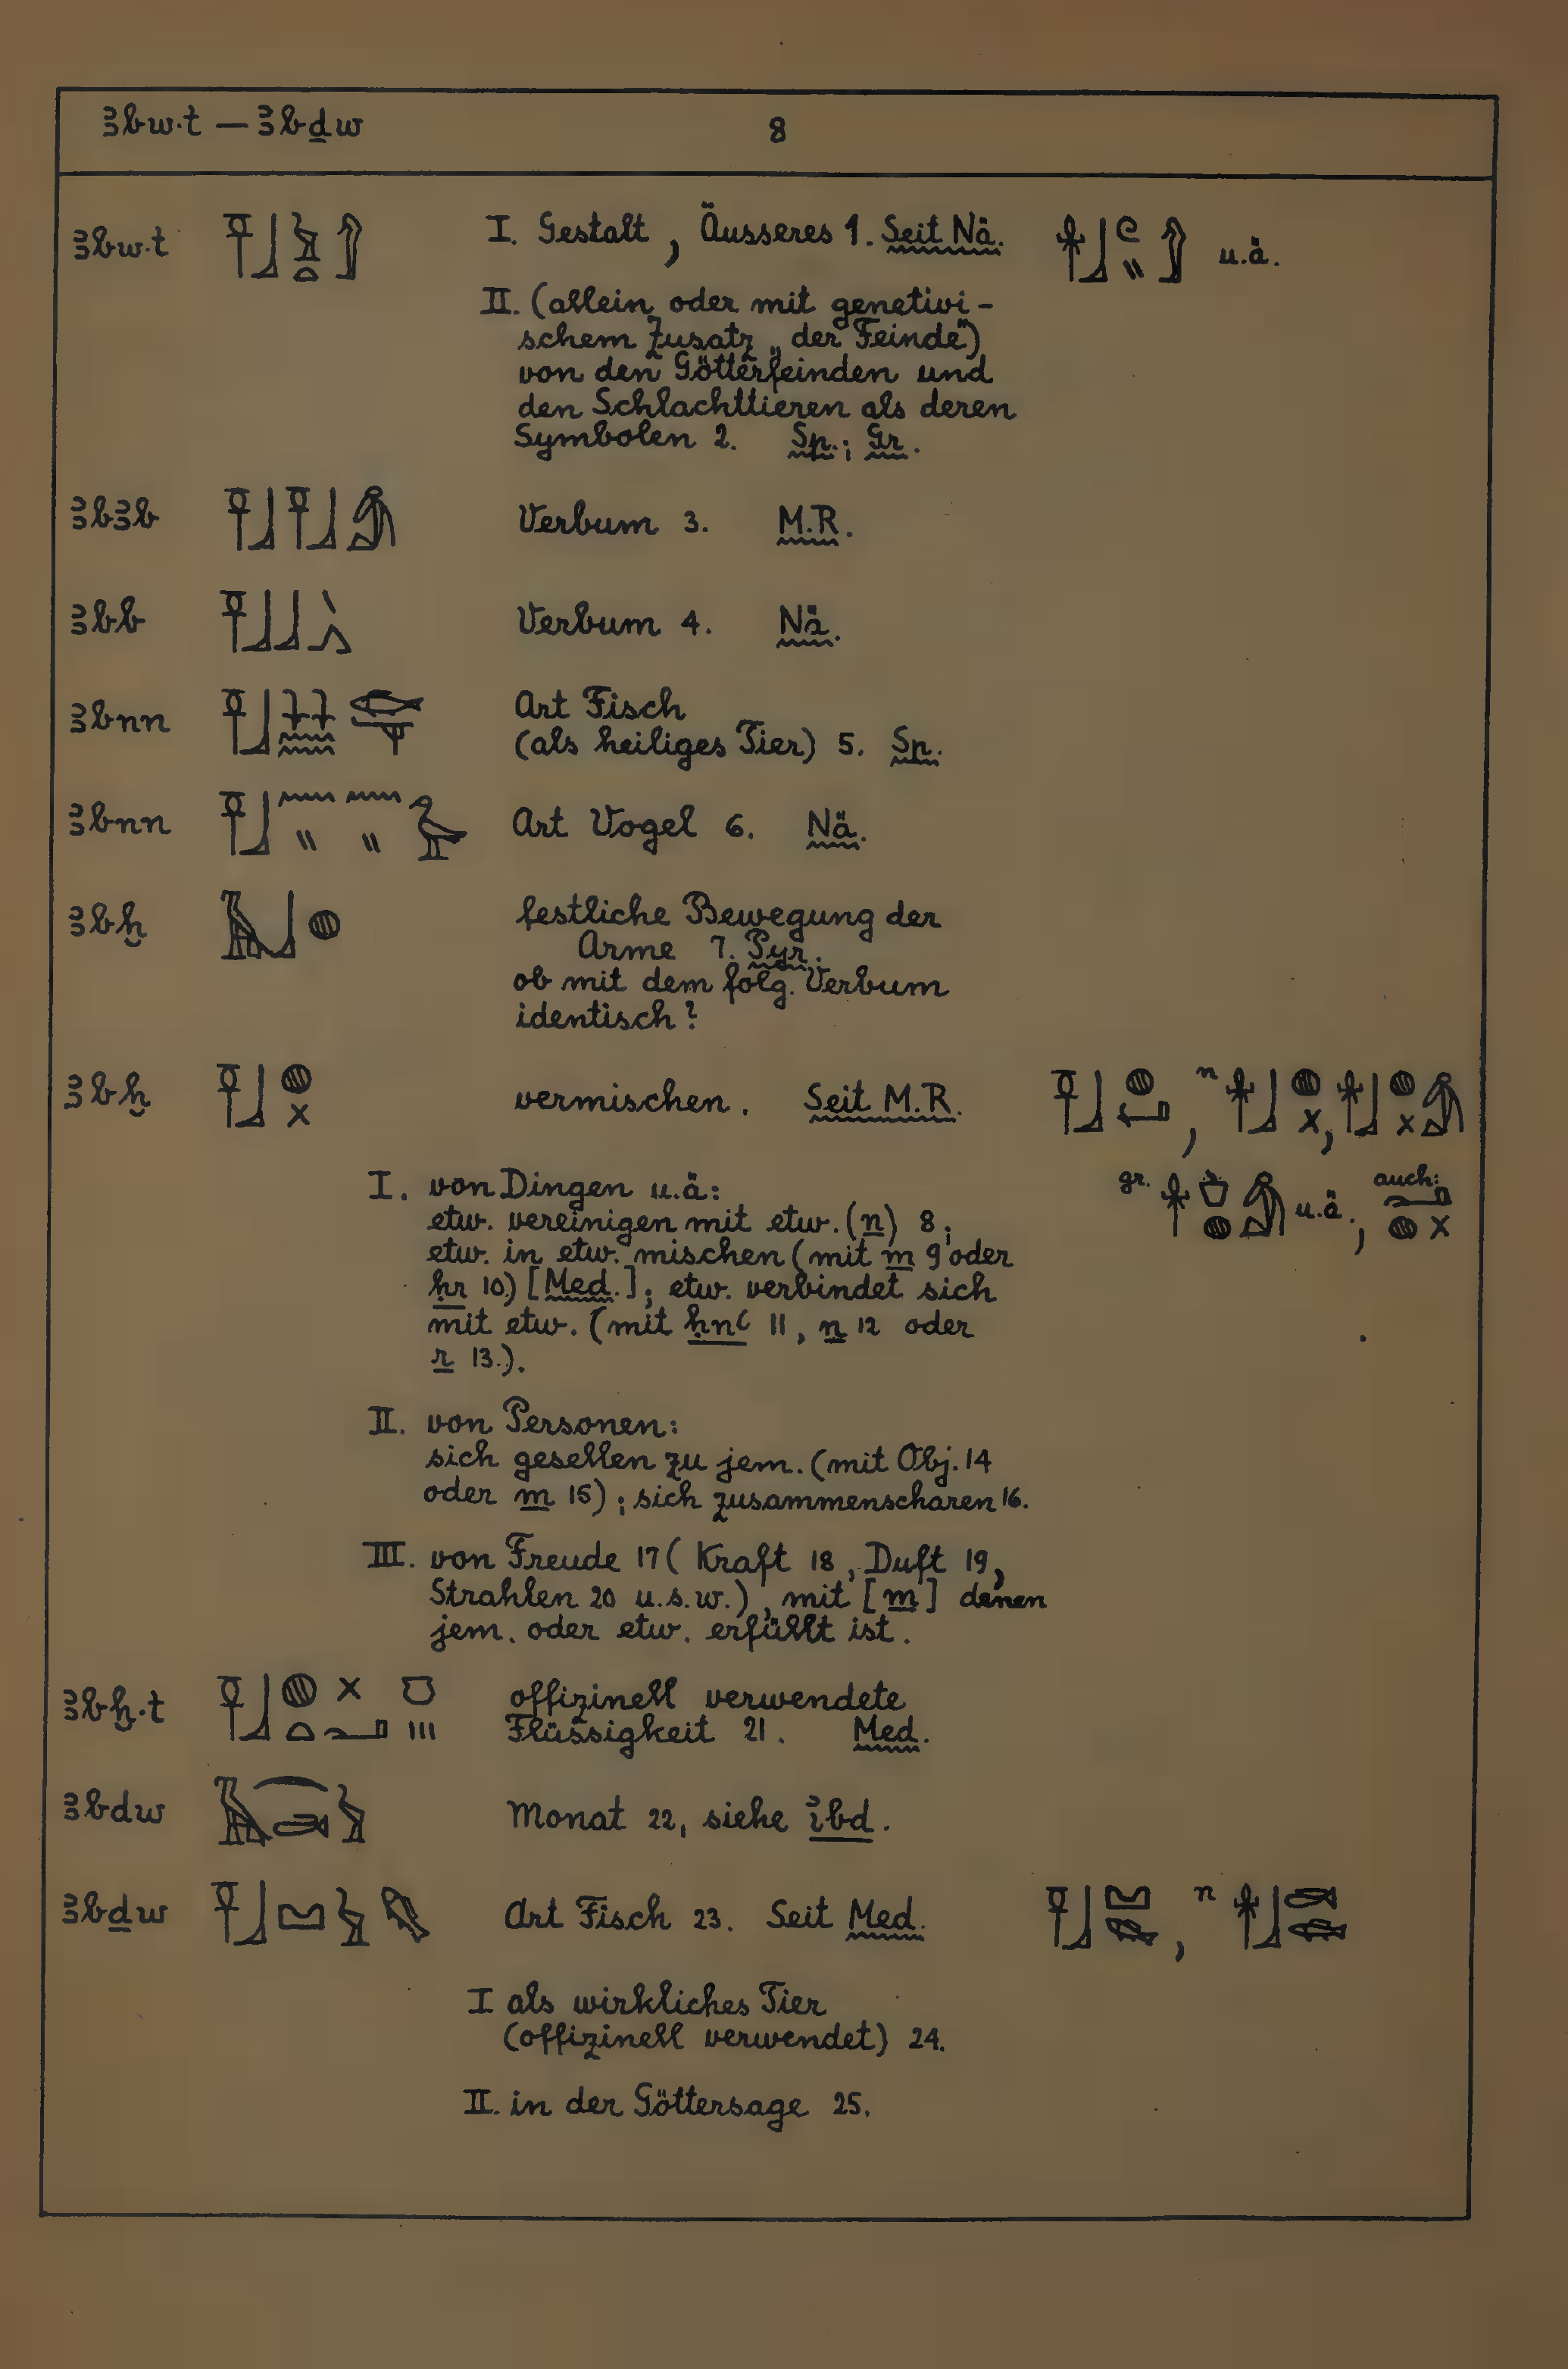 ꜣbw·t — ꜣbḏw 8
ꜣbw·t I. Gestalt, Äusseres 1. Seit Nä. u.ä.
II. (allein oder mit genetivi-
schem Zusatz „der Feinde“)
von den Götterfeinden und
den Schlachttieren als deren
Symbolen 2. Sp.; Gr.
ꜣbꜣb Verbum 3. M.R.
ꜣbb Verbum 4. Nä.
ꜣbnn Art Fisch
(als heiliges Tier) 5. Sp.
ꜣbnn Art Vogel 6. Nä.
ꜣbḫ festliche Bewegung der
Arme 7. Pyr.
ob mit dem folg. Verbum
identisch?
ꜣbḫ vermischen. Seit M.R. , n , 
I. von Dingen u.ä: gr. u.ä., auch:
etw. vereinigen mit etw. (n) 8;
etw. in etw. mischen (mit m 9 oder
ḥr 10.) [Med.]; etw. verbindet sich
mit etw. (mit ḥnꜥ 11, n 12 oder
r 13.).
II. von Personen:
sich gesellen zu jem. (mit Obj. 14
oder m 15); sich zusammenscharen 16.
III. von Freude 17 (Kraft 18, Duft 19,
Strahlen 20 u.s.w.), mit [m] denen
jem. oder etw. erfüllt ist.
ꜣbḫ·t offizinell verwendete
Flüssigkeit 21. Med.
ꜣbdw Monat 22, siehe ꞽbd.
ꜣbḏw Art Fisch 23. Seit Med. , n
I als wirkliches Tier
(offizinell verwendet) 24.
II. in der Göttersage 25.